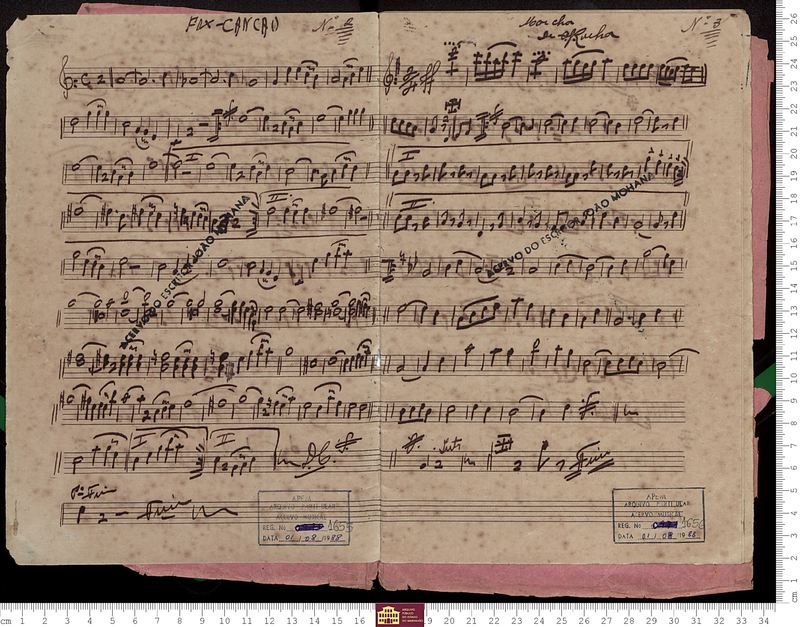 FOX-CANÇÃO Nº 2
I
II
I
II
D.C.
Pª Fim
Fim
ACERVO DO ESCRITOR JOÃO MOHANA
APEM
ARQUIVO PARTICULAR
ACERVO MUSICAL
REG. No 1655
DATA 01/08/1988
Marcha Nº 3
de Rocha
I
II
Fim
ACERVO DO ESCRITOR JOÃO MOHANA
APEM
ARQUIVO PARTICULAR
ACERVO MUSICAL
REG. No 1656
DATA 01/08/1988
cm 1 2 3 4 5 6 7 8 9 10 11 12 13 14 15 16 19 20 21 22 23 24 25 26 27 28 29 30 31 32 33 34